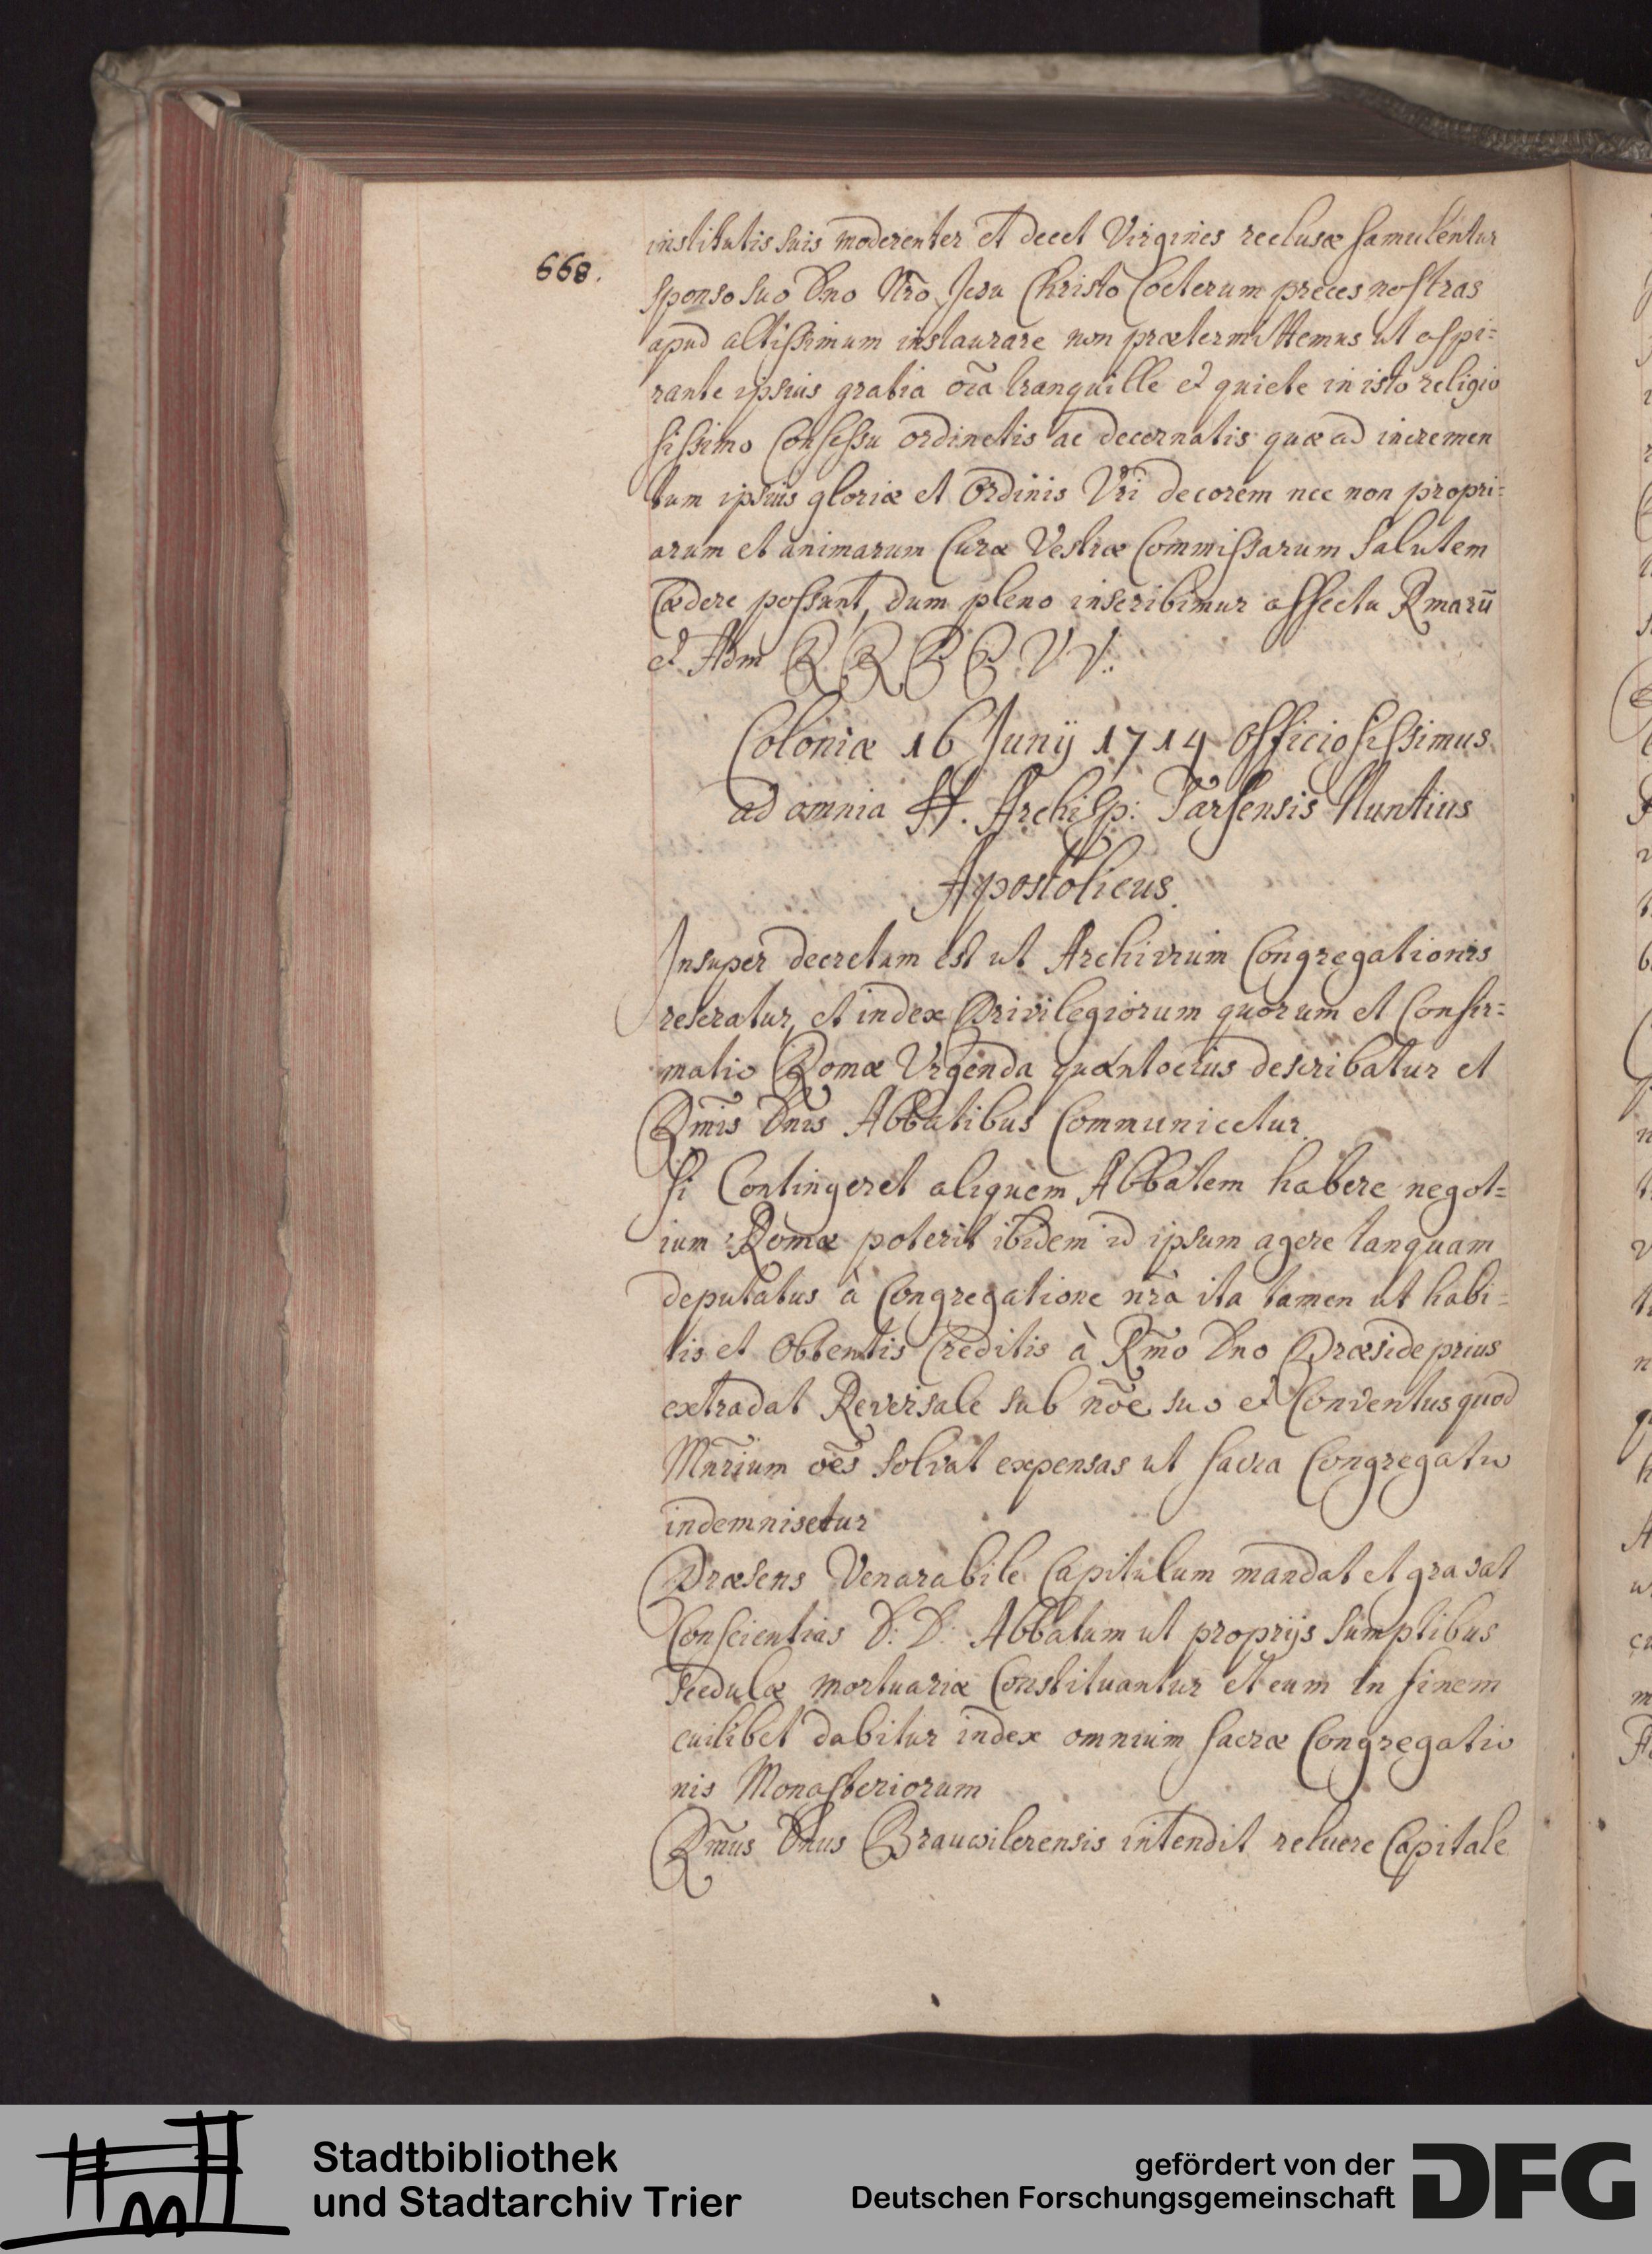 668.
institutis suis moderenter et decet Virgines reclusæ famulentur
sponso suo Dno Nro Jesu Christo Coeterum preces nostras
apud altissimum instaurare non prætermittemus ut aspi=
rante ipsius gratia oīa tranquille et quiete in isto religio
sissimo Consessu ordinetis ac decernatis quæ ad incremen
tum ipsius gloriæ et Ordinis Vri decorem nec non propri=
arum et animarum Curæ Vestræ Commissarum Salutem
Cædere possunt, dum pleno inscribimur affectu Rmarū
et Adm R. R. P. P. V V.
Coloniæ 16 Junij 1714 officiosissimus
ad omnia H. Archisp: Tarsensis Nuntius
Apostolicus.
Insuper decretum est ut Archivum Congregationis
reseratur, et index Privilegiorum quorum et Confir=
matio Romæ Urgenda quantocius describatur et
Rmis Dnis Abbatibus Communicetur.
Si Contingeret aliquem Abbatem habere negot=
ium Romæ poterit ibidem id ipsum agere tanquam
deputatus à Congregatione nrà ita tamen ut habi=
tis et Obtentis Creditis à Rmo Dno Præside prius
extradat Reversale sub nōe suo et Conventus quod
Mnrium oēs solvat expensas ut sacra Congregatio
indemnisetur
Præsens Venarabile Capitulum mandat et gravat
Conscientias D: D: Abbatum ut proprijs Sumptibus
scedulæ mortuariæ Constituantur et eum in finem
cuilibet dabitur index omnium sacræ Congregatio
nis Monasteriorum
Rmus Dnus Brauwilerensis intendit reluere Capitale
Stadtbibliothek
und Stadtarchiv Trier
gefördert von der
Deutschen Forschungsgemeinschaft
DFG